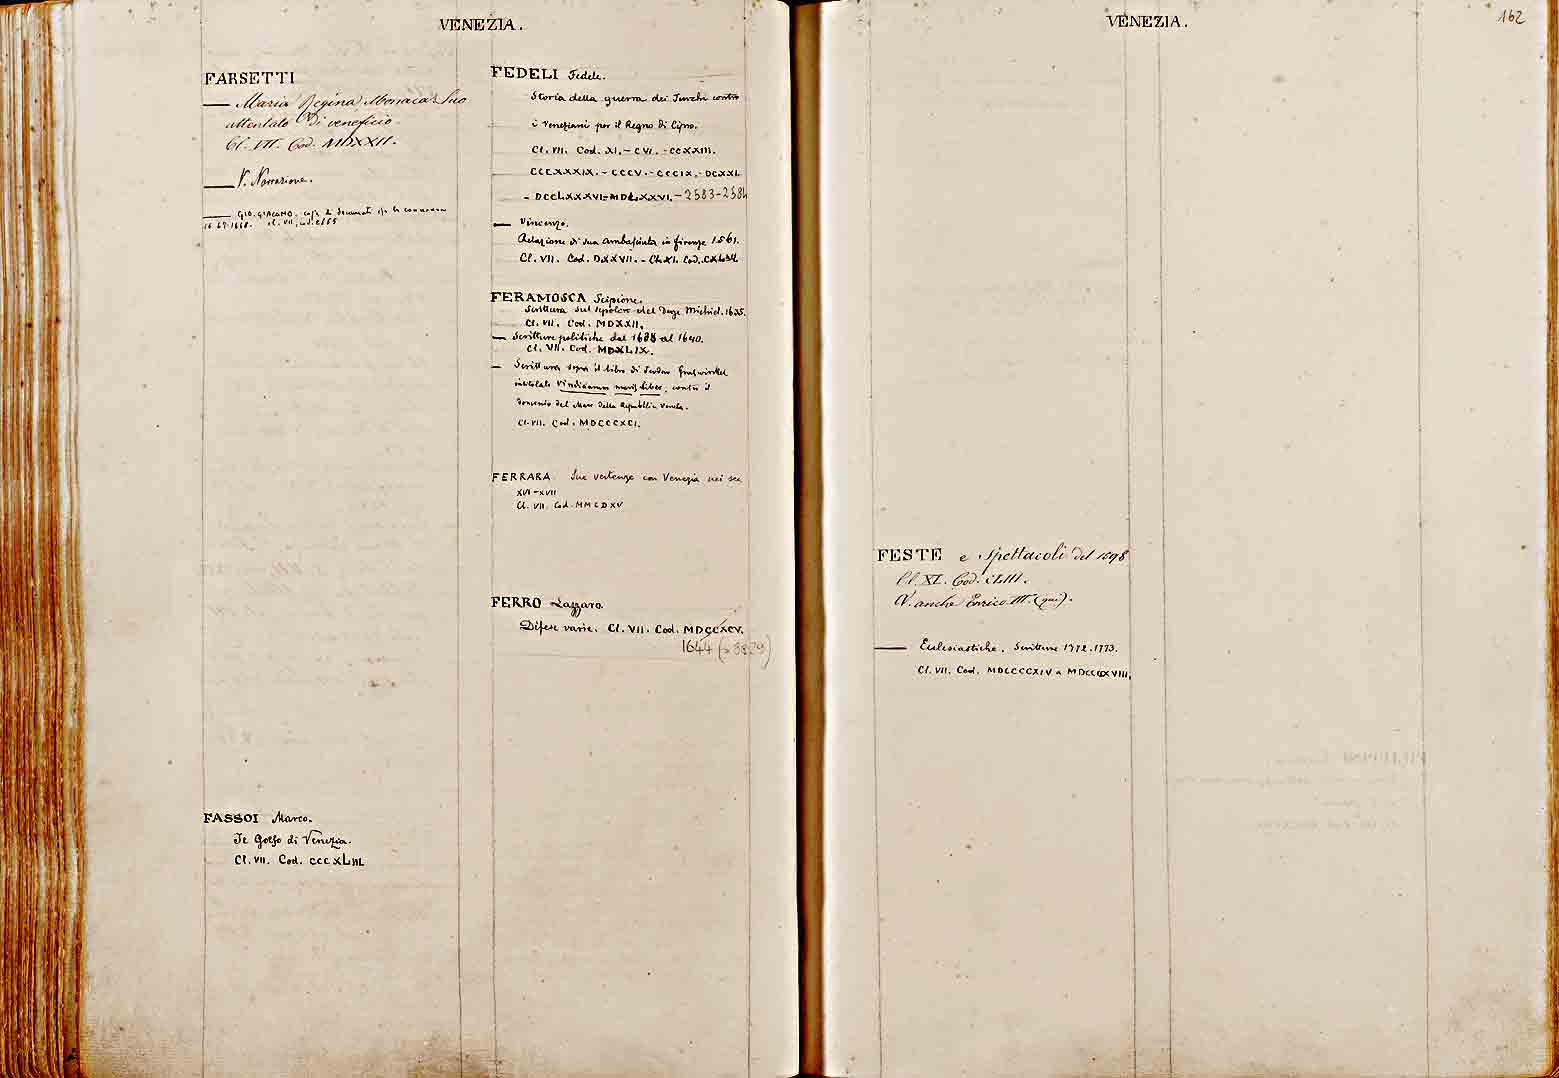 VENEZIA.
FARSETTI
— Maria Regina Monaca. Suo
attentato di veneficio.
Cl. VII. Cod. MDXXII.
— V. Narrazione.
— GIO. GIACOMO. di documenti
Cl. VII,
FASSOI Marco.
Golfo di Venezia.
Cl. VII. Cod.
FEDELI Fedele.
Storia della guerra dei Turchi contro
i Veneziani per il Regno di Cipro.
Cl. VII. Cod. XI. - CVI. - CCXXIII.
CCCXXXIX. - CCCV. - CCCIX. - DCXXI.
- DCCLXXXVI - MDLXXVI. - 2583-2584
— Vincenzo.
Relazione di sua ambasciata in Firenze 1561.
Cl. VII. Cod. DXXVII. - Cl. XI. Cod.
FERAMOSCA Scipione.
Scrittura sul sepolcro del Doge Michiel. 1635.
Cl. VII. Cod. MDXXII.
— Scritture politiche dal 1638 al 1640.
Cl. VII. Cod. MDXLIX.
— Scrittura sopra il libro di
intitolato Vindiciarum maris liber, contro il
dominio del Mare della Repubblica Veneta.
Cl. VII. Cod. MDCCCXCI.
FERRARA. Sue vertenze con Venezia nei sec.
XVI-XVII
Cl. VII. Cod. MMCDXV
FERRO Lazzaro.
Difese varie. Cl. VII. Cod. MDCCXCV.
1644 (= 8829)
VENEZIA.
162
FESTE e Spettacoli del 1598
Cl. XI. Cod. CLIII.
V. anche Enrico III. (qui).
— Ecclesiastiche. Scritture 1772. 1773.
Cl. VII. Cod. MDCCCCXIV a